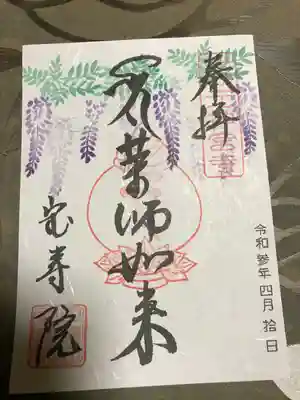 奉拝
薬師如来
令和参年四月拾日
宝寿院